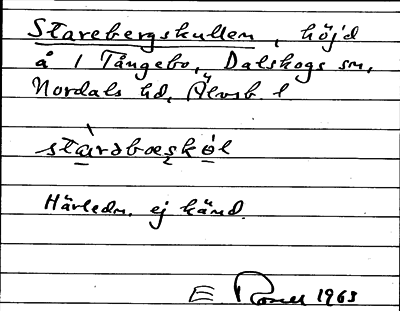 Starebergskullen, höjd
å 1 Tångebo, Dalskogs sn,
Nordals hd, Älvsb. l
stàrəbæskol
Härledn. ej känd.
E 1963